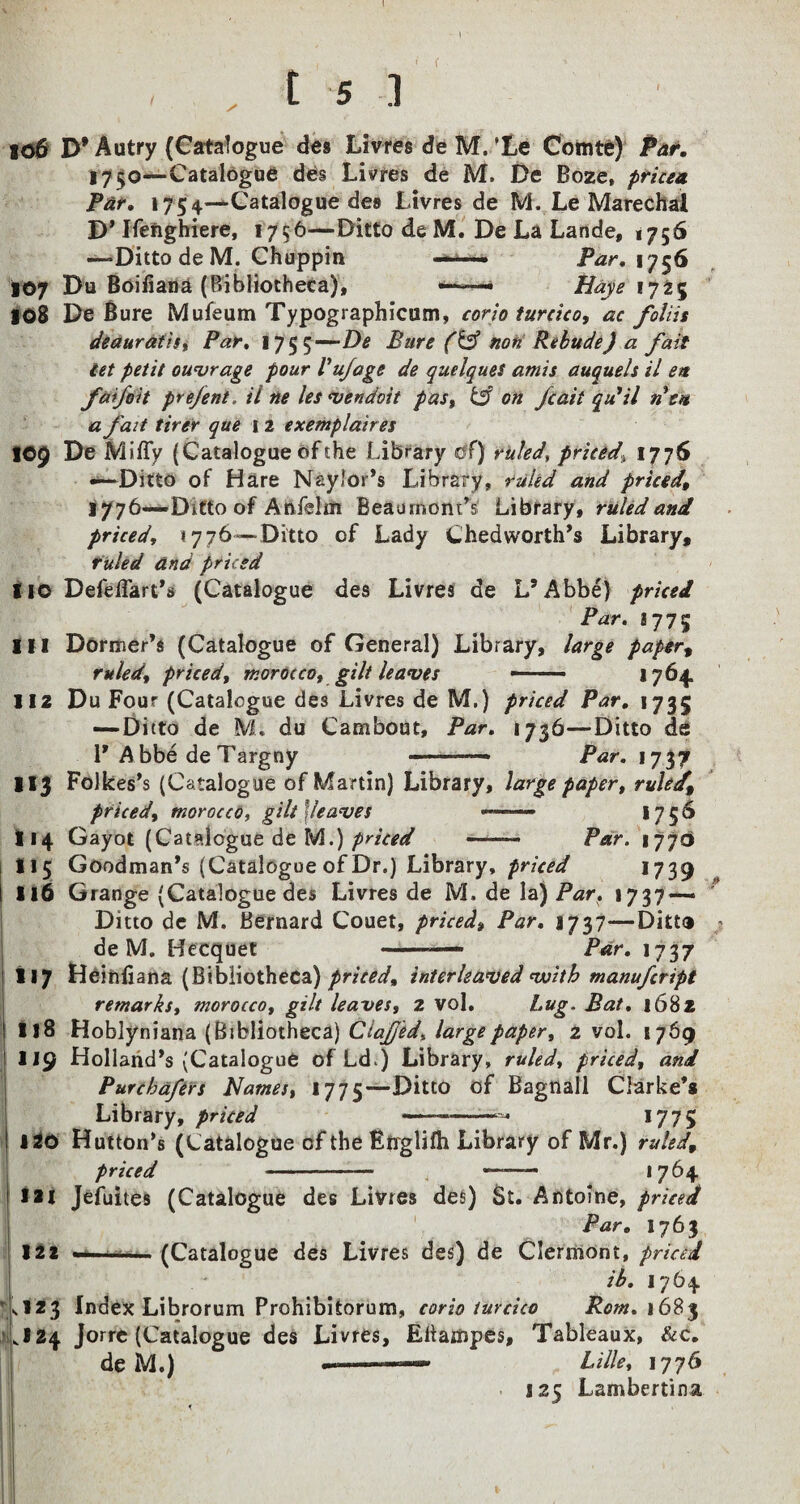 [ 5 ]
106 D'Autry (Catalogue des Livres de M. 'Le Comte) Par.
1750—Catalogue des Livres de M. De Boze, priced
Par. 1754—Catalogue des Livres de M. Le Marechal
D'Iſenghiere, 1756—Ditto de M. De La Lande, 1756
—Ditto de M. Chuppin —— Par. 1756
107 Du Boiſiana (Bibliotheca), —— Haye 1725
108 De Bure Muſeum Typographicum, corio turcico, ac foliis
deauratis, Par. 1755—De Bure (& non Rebude) a fait
cet petit ouvrage pour l'uſage de quelques amis auquels il en
faiſoit preſent. il ne les vendoit pas, & on ſcait qu'il n'en
a fait tirer que 12 exemplaires
109 De Miſſy (Catalogue of the Library of) ruled, priced, 1776
—Ditto of Hare Naylor's Library, ruled and priced,
1776—Ditto of Anſelm Beaumont's Library, ruled and
priced, 1776—Ditto of Lady Chedworth's Library,
ruled and priced
110 Deſeſſart's (Catalogue des Livres de L'Abbé) priced
Par. 1775
111 Dormer's (Catalogue of General) Library, large paper,
ruled, priced, morocco, gilt leaves —— 1764
112 Du Four (Catalogue des Livres de M.) priced Par. 1735
—Ditto de M. du Cambout, Par. 1736—Ditto de
l'Abbé de Targny —— Par. 1737
113 Folkes's (Catalogue of Martin) Library, large paper, ruled,
priced, morocco, gilt leaves —— 1756
114 Gayot (Catalogue de M.) priced —— Par. 1770
115 Goodman's (Catalogue of Dr.) Library, priced 1739
116 Grange (Catalogue des Livres de M. de la) Par. 1737—
Ditto de M. Bernard Couet, priced, Par. 1737—Ditto
de M. Hecquet —— Par. 1737
117 Heinſiana (Bibliotheca) priced, interleaved with manuſcript
remarks, morocco, gilt leaves, 2 vol. Lug. Bat. 1682
118 Hoblyniana (Bibliotheca) Claſſed, large paper, 2 vol. 1769
119 Holland's (Catalogue of Ld.) Library, ruled, priced, and
Purchaſers Names, 1775—Ditto of Bagnall Clarke's
Library, priced —— 1775
120 Hutton's (Catalogue of the Engliſh Library of Mr.) ruled,
priced —— —— 1764
121 Jeſuites (Catalogue des Livres des) St. Antoine, priced
Par. 1763
122 —— (Catalogue des Livres des) de Clermont, priced
ib. 1764
123 Index Librorum Prohibitorum, corio turcico Rom. 1683
124 Jorre (Catalogue des Livres, Eſtampes, Tableaux, &c.
de M.) —— Lille, 1776
125 Lambertina